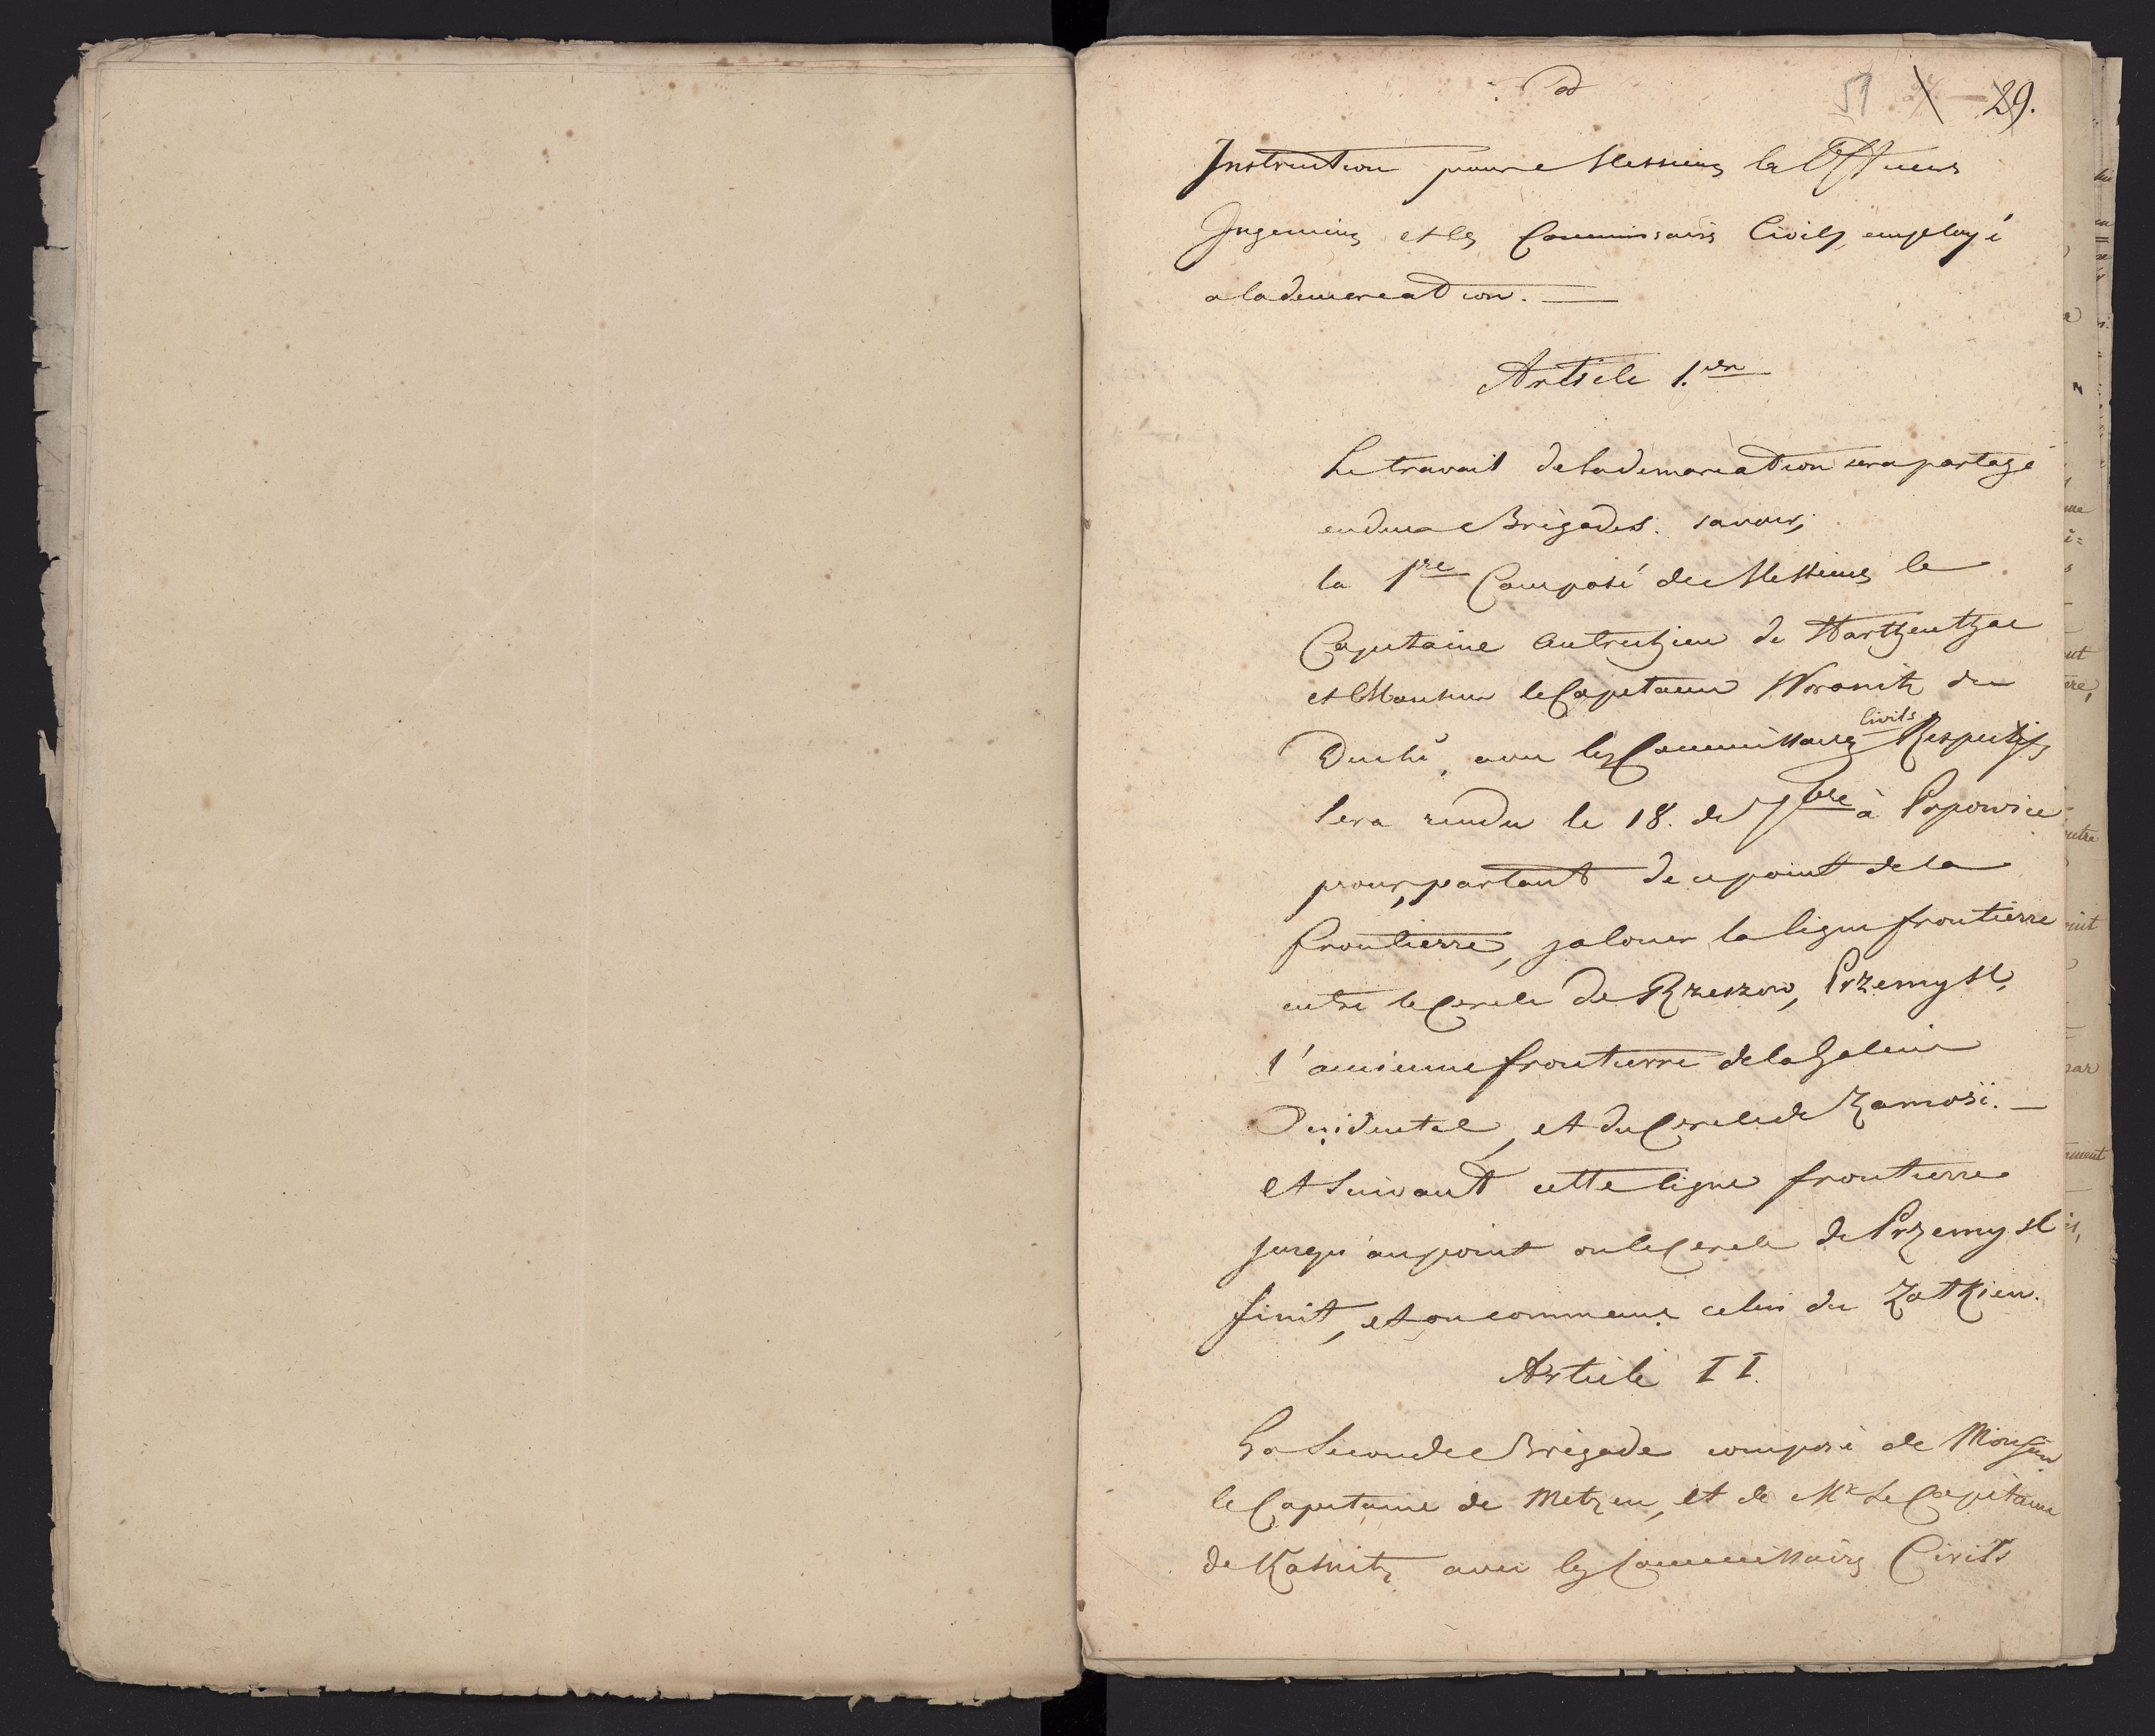 ad
51 29.
Instruction pour Messieurs les Officiers
Ingenieurs et les Commissairs Civils employé
a la demarcation.
Article 1.er
Le travail de la demarcation sera partagé
en deux Brigades. savoir;
la 1re Composé de Messieurs le
Capitaine Autrichien de
et Monsieur le Capitaine Woronitz du
Duché, avec les Commissaires Civils Respectifs
Sera rendu le 18. de 7bre à Popowice
pour, partant de ce point de la
frontierre, jaloner la ligne frontierre
entre le Cercle de Rzeszow, Przemysl,
l'ancienne frontierre de la Galicie
Occidentale, et du Cercle de Zamosc.
et Suivant cette ligne frontierre
jusqu'au point ou le Cercle de Przemysl
finit, et ou commence celui du Zolkiew.
Article II.
La Seconde Brigade composé de Monsieur
le Capitaine de Metzen, et de Mr Le Capitaine
de avec les Commissairs Civils